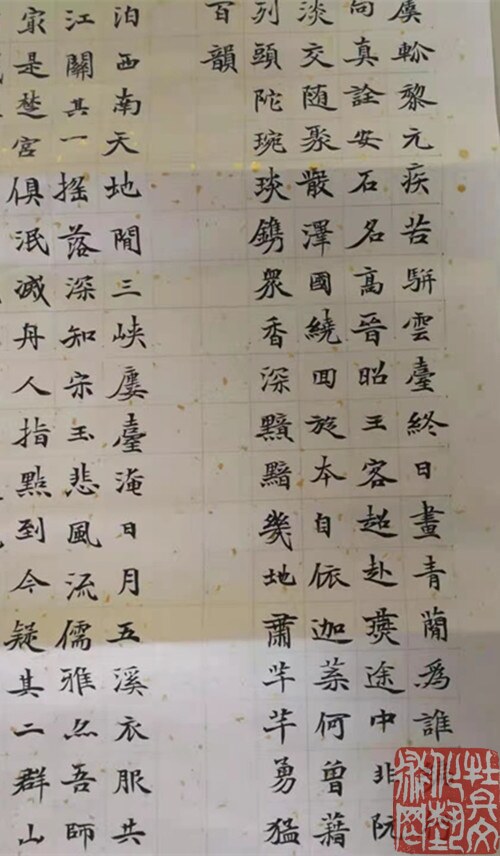 虞軫黎元疾苦駢雲臺終日畫青蕑為誰
向真詮安石名高晉昭王客超赴燕途中非阮
淡交随聚散澤國繞回旋本自依迦葉何曾藉
列頭陀琬琰鐫眾香深黯黯幾地肅芊芊勇猛
百韻
泊西南天地間三峽屢臺淹日月五溪衣服共
江關其一摇落深知宋玉悲風流儒雅亦吾師
最是楚宮俱泯滅舟人指點到今疑其二群山